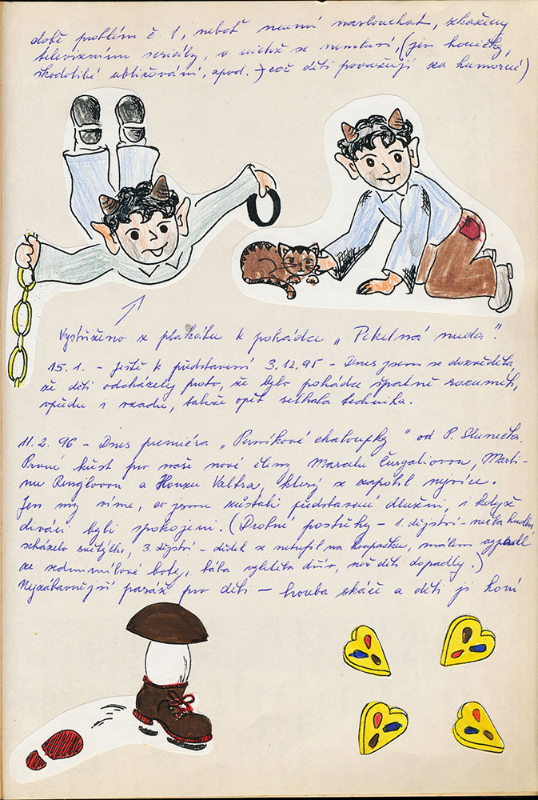 době problém č. 1, neboť neumí naslouchat, zkaženy
televizními seriály, v nichž se nemluví, (jen honičky,
škodolibé ubližování, apod. → což děti považují za humorné)
Vystřiženo z plakátu k pohádce „Pekelná nuda".
15.1. - Ještě k představení 3.12.95 - Dnes jsem se dozvěděla,
že děti odcházely proto, že bylo pohádce špatně rozumět,
vpředu i vzadu, takže opět selhala technika.
11.2.96 - Dnes premiéra „Perníkové chaloupky" od P. Slunečka.
První křest pro naše nové členy Marcelu Čurgaliovou, Marti-
nu Renglovou a Honzu Valtra, který se zapotil nejvíce.
Jen my víme, co jsme zůstali představení dlužni, i když
diváci byli spokojeni. (Drobné postřehy - 1. dějství -
scházelo 3. dějství - děda se netrefil na houpačku, málem
ze sedmimílové boty, bába vyhlížela dřív, než děti dopadly.)
Nejzábavnější pasáž pro děti - houba skáče a děti ji honí